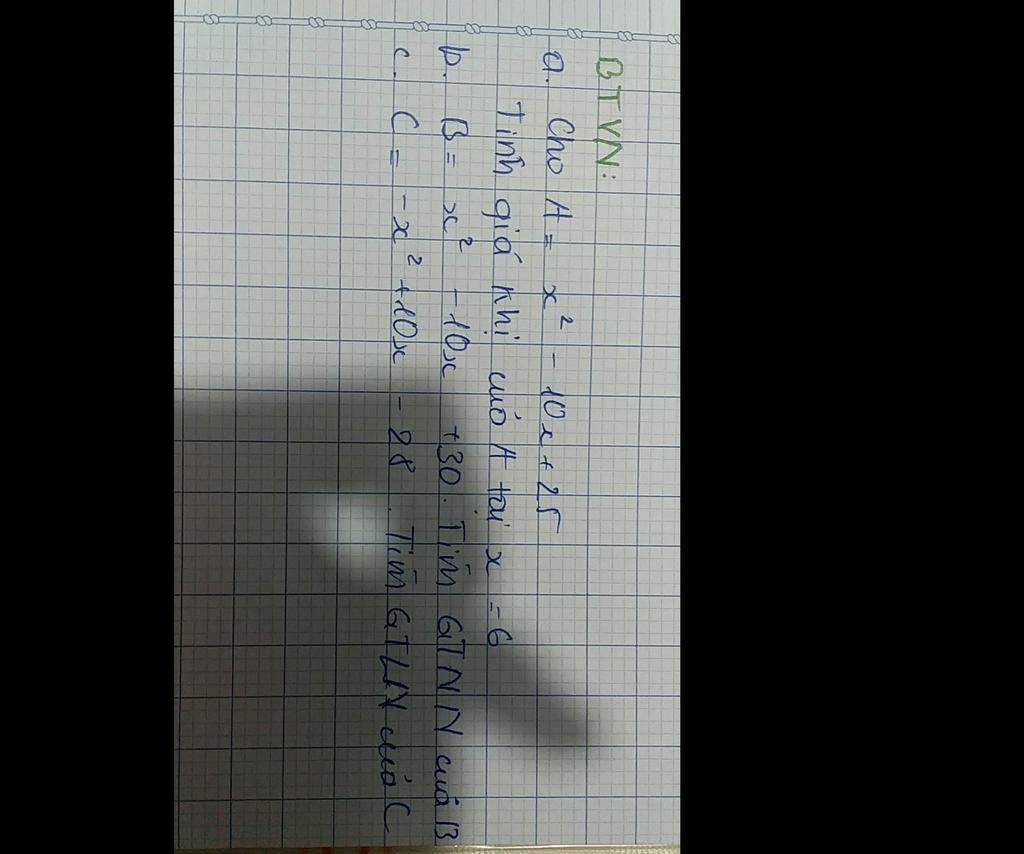 BTVN:
a. Cho A = x² - 10x + 25
Tính giá khị của A tại x = 6
b. B = x² - 10x + 30. Tìm GTNN của B
c. C = -x² + 10x - 28. Tìm GTLN của C